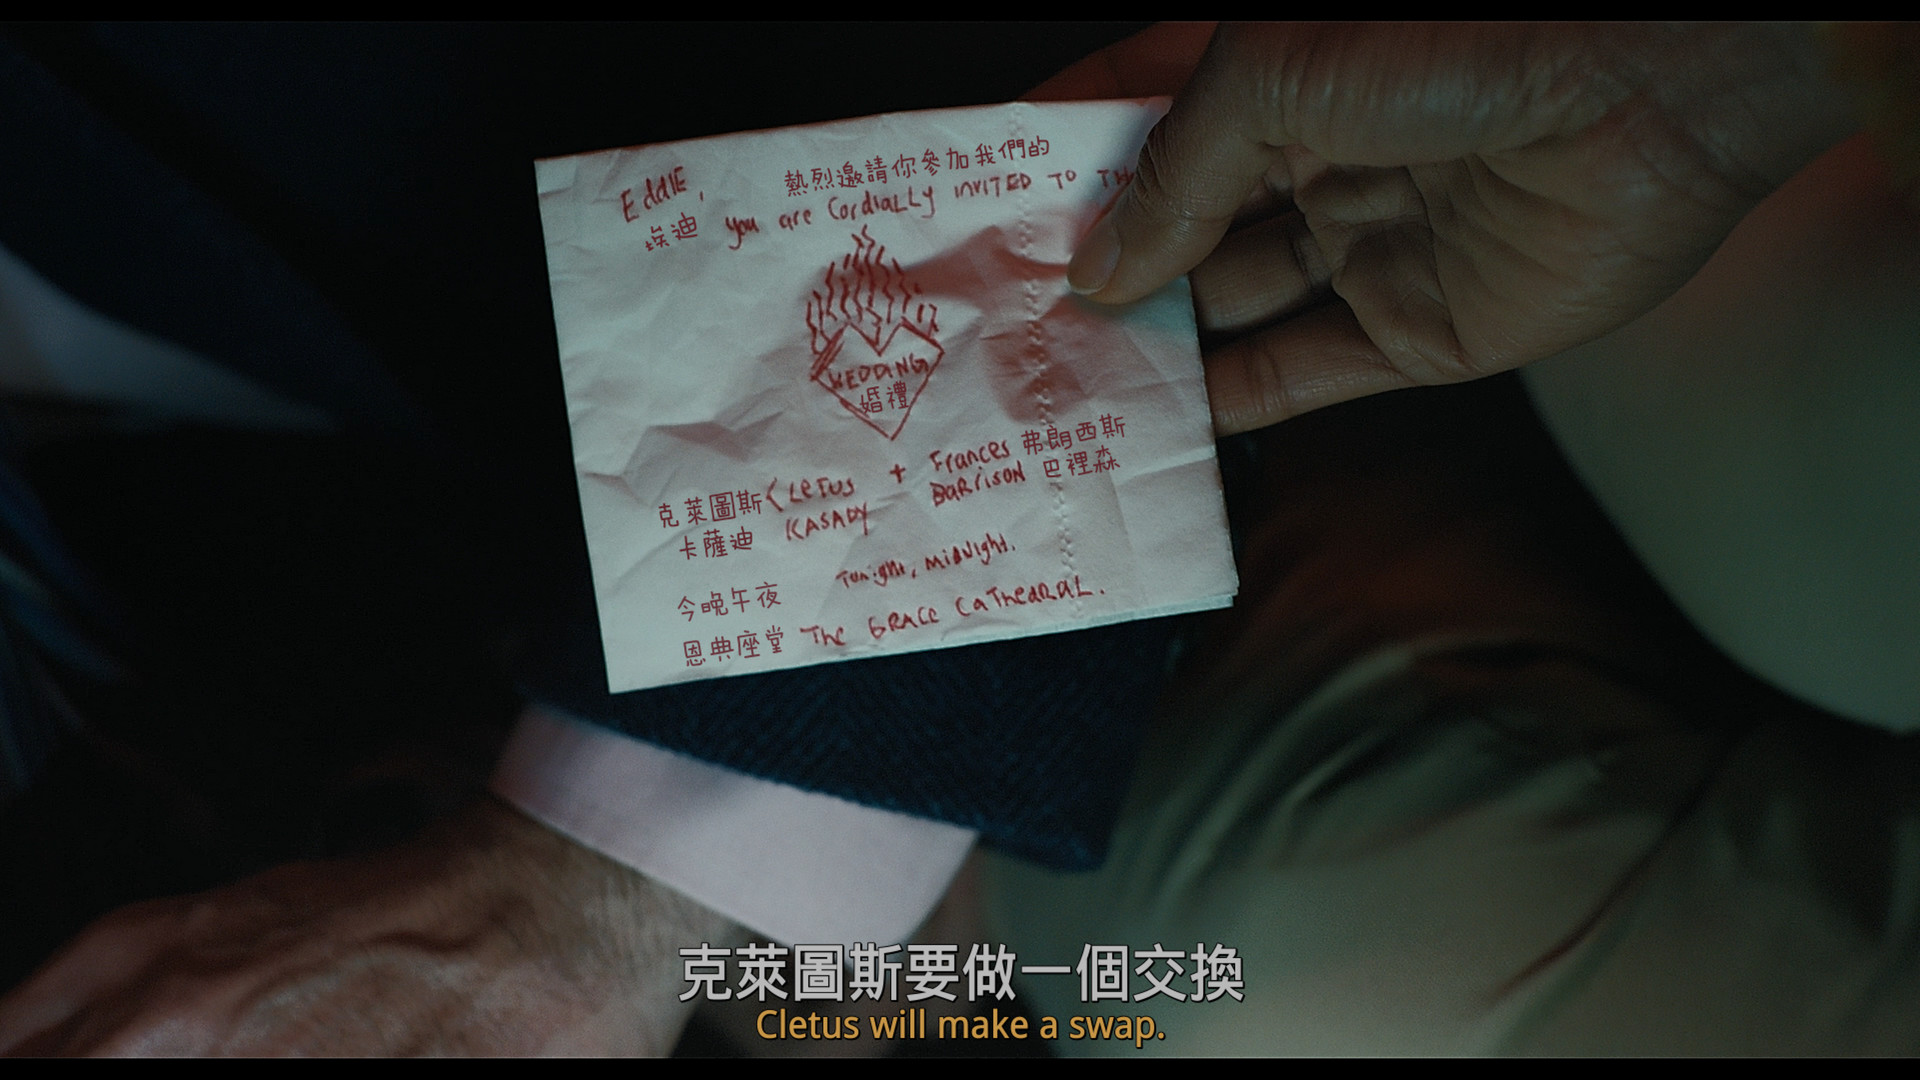 EddIE,
埃迪
熱烈邀請你參加我們的
you are CordiaLLy INVITED TO TH
WEDDING
婚禮
克萊圖斯 CLETUS + Frances 弗朗西斯
卡薩迪 KASADY BaRRISON 巴裡森
今晚午夜 Tonight, MIDNight.
恩典座堂 The GRACE CaThedRaL.
克萊圖斯要做一個交換
Cletus will make a swap.